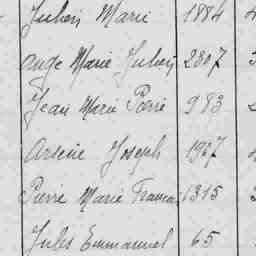 Julien Marie 1884
Ange Marie Julien 2807
Jean Marie Pierre 983
Arsène Joseph 1927
Pierre Marie Francois 1315
Jules Emmanuel 65